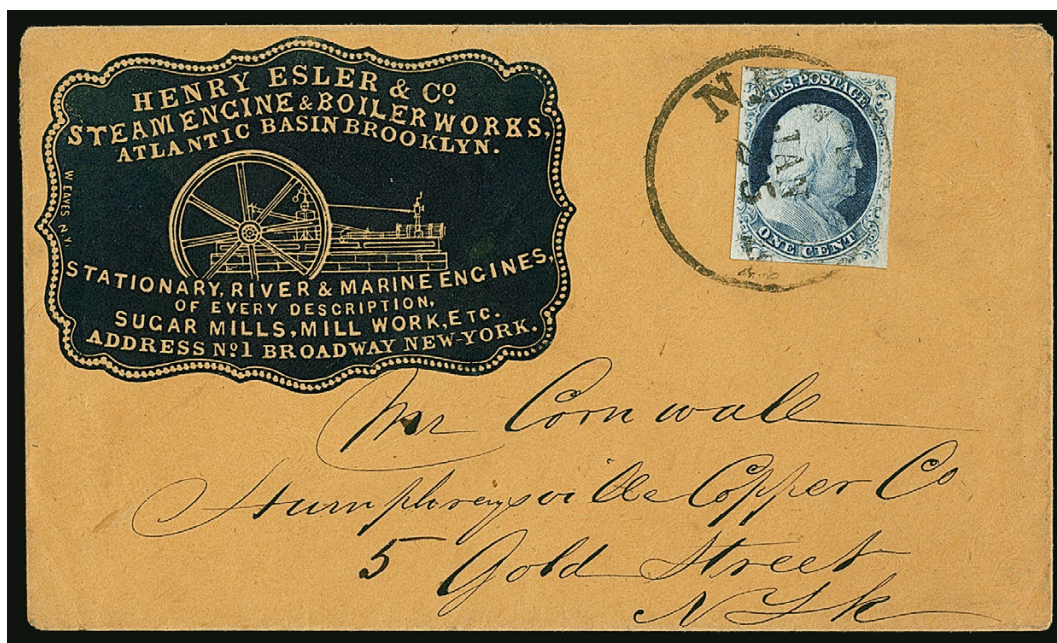 HENRY ESLER & Co
STEAM ENGINE & BOILER WORKS,
ATLANTIC BASIN BROOKLYN.
W EAVES N Y
STATIONARY, RIVER & MARINE ENGINES,
OF EVERY DESCRIPTION,
SUGAR MILLS, MILL WORK, ETC.
ADDRESS No 1 BROADWAY NEW-YORK.
N
JAN
5
U.S. POSTAGE
ONE CENT
Mr Cornwall
Humphreysville Copper Co
5 Gold Street
N Yk